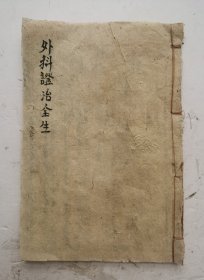 外科證治全生